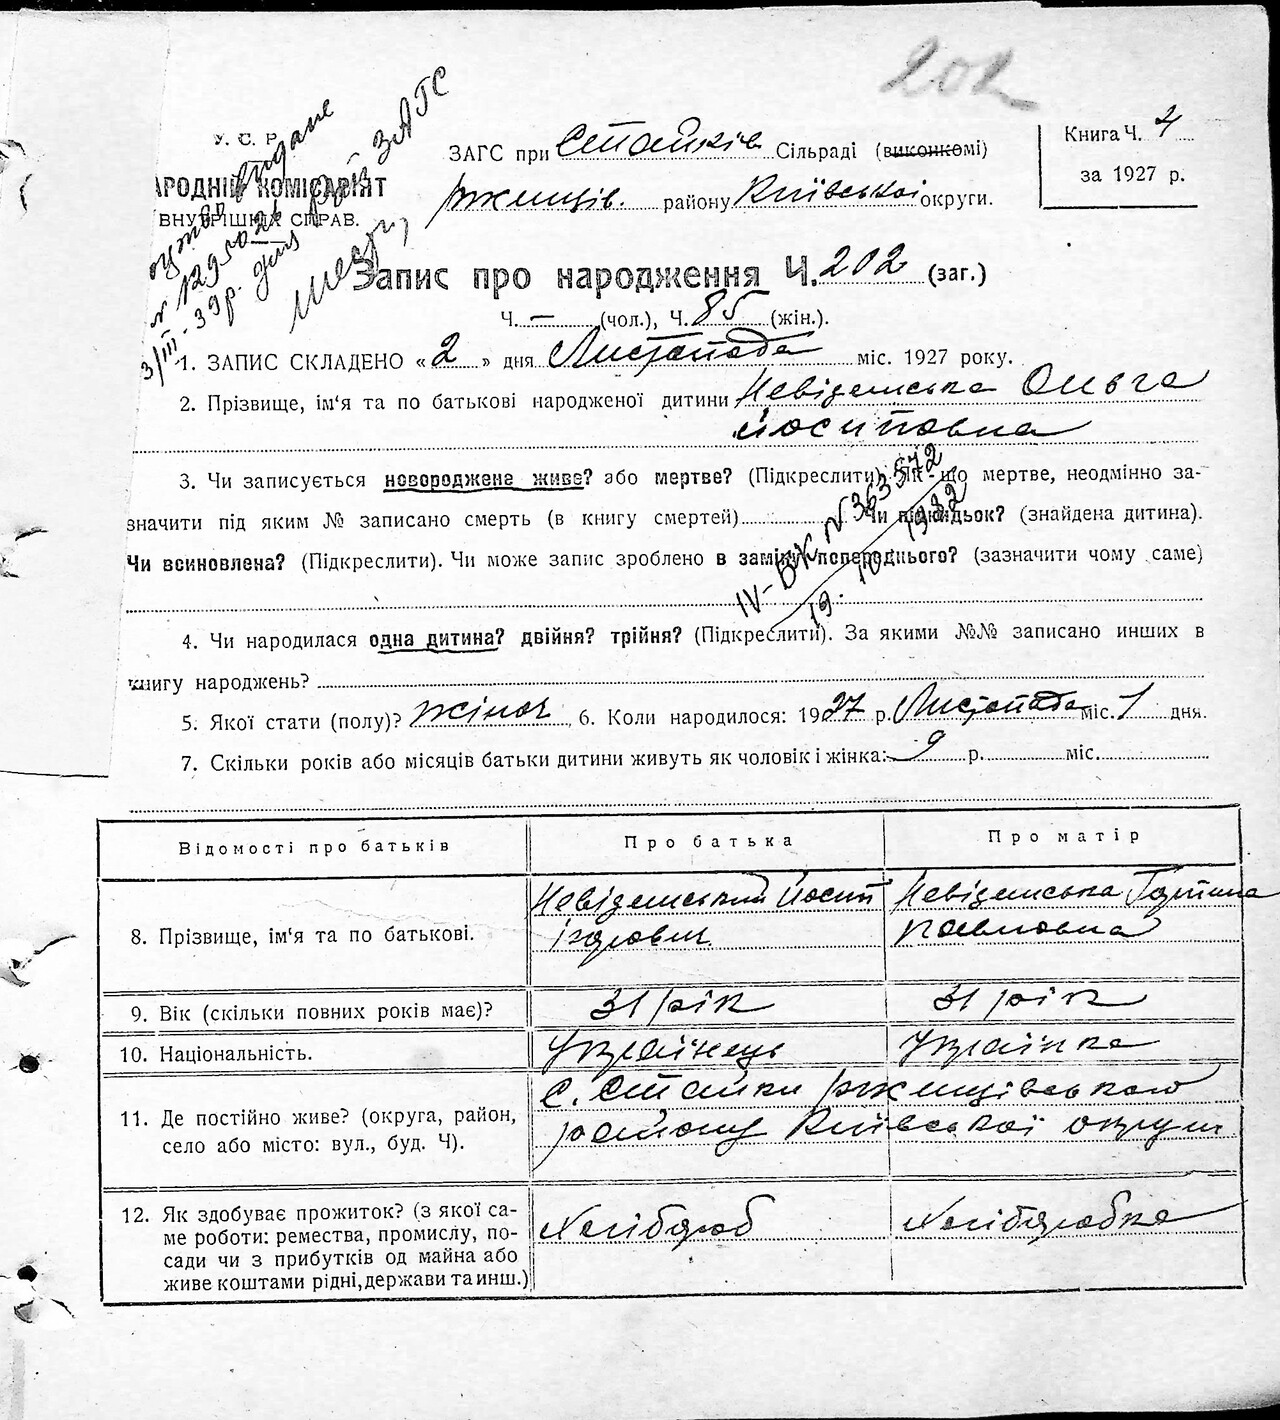 202
У. С. Р.
АРОДНІЙ КОМІСАРІЯТ
ВНУТРІШНІХ СПРАВ.
ЗАГС при Стайків Сільраді (виконкомі)
ржищів. району Київської округи.
Книга Ч. 4
за 1927 р.
видане
№ 129502
3/III-39р. для ЗАГС
Запис про народження Ч. 202 (заг.)
Ч. — (чол.), Ч. 85 (жін.).
1. ЗАПИС СКЛАДЕНО «2» дня Листопада міс. 1927 року.
2. Прізвище, ім'я та по батькові народженої дитини Невідемська Ольга
йосиповна
3. Чи записується новороджене живе? або мертве? (Підкреслити). Як-що мертве, неодмінно за-
значити під яким № записано смерть (в книгу смертей) Чи підкидьок? (знайдена дитина).
Чи всиновлена? (Підкреслити). Чи може запис зроблено в замін попереднього? (зазначити чому саме)
IV-БК № 363572
19. IV 1982
4. Чи народилася одна дитина? двійня? трійня? (Підкреслити). За якими №№ записано инших в
книгу народжень?
5. Якої стати (полу)? жіноч 6. Коли народилося: 1927 р. Листопада міс. 1 дня.
7. Скільки років або місяців батьки дитини живуть як чоловік і жінка: 9 р. міс.
Відомості про батьків Про батька Про матір
Невідемський Йосип Невідемська
8. Прізвище, ім'я та по батькові. павловна
9. Вік (скільки повних років має)? 31 рік 31 рік
10. Національність. Українець Українка
с. Стайки ржищівського
11. Де постійно живе? (округа, район,
району Київської округи
село або місто: вул., буд. Ч).
12. Як здобуває прожиток? (з якої са- Хлібороб Хліборобка
ме роботи: ремества, промислу, по-
сади чи з прибутків од майна або
живе коштами рідні, держави та инш.)